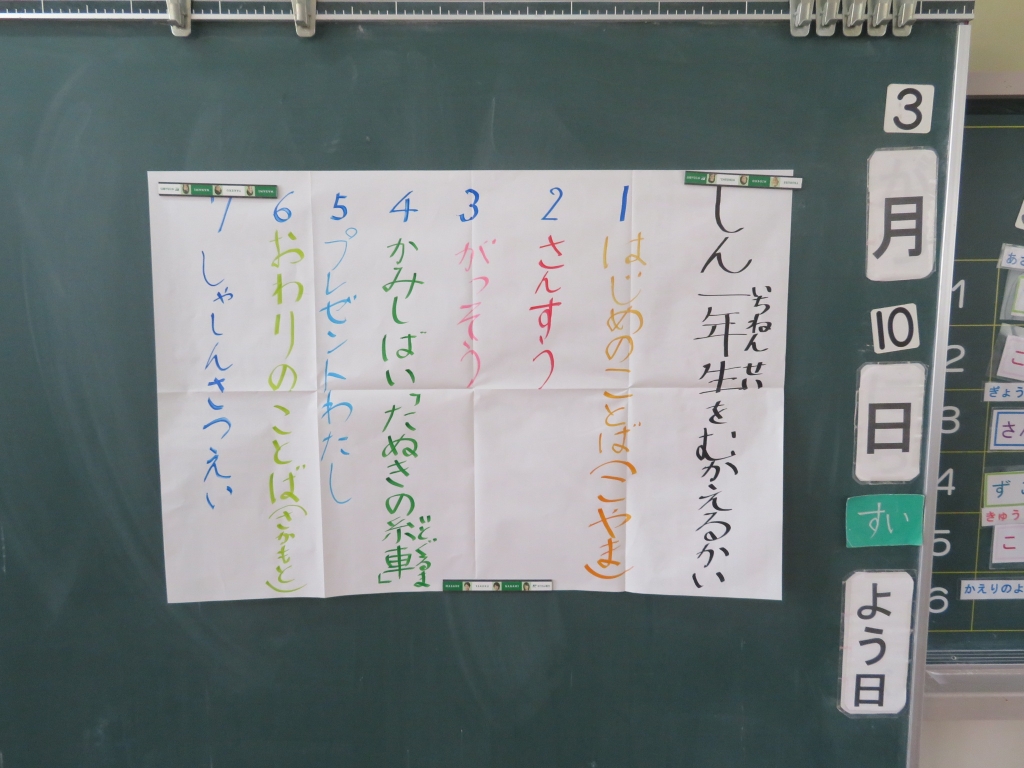 しん一年生をむかえるかい
いちねんせい
1 はじめのことば(こやま)
2 さんすう
3 がっそう
4 かみしばい「たぬきの糸車」
いとぐるま
5 プレゼントわたし
6 おわりのことば(さかもと)
7 しゃしんさつえい
3
月
10
日
すい
よう日
1
2
3
4
5
6
あさ
こ
ぎょう
さん
ずこ
きゅう
こ
かえりのよ